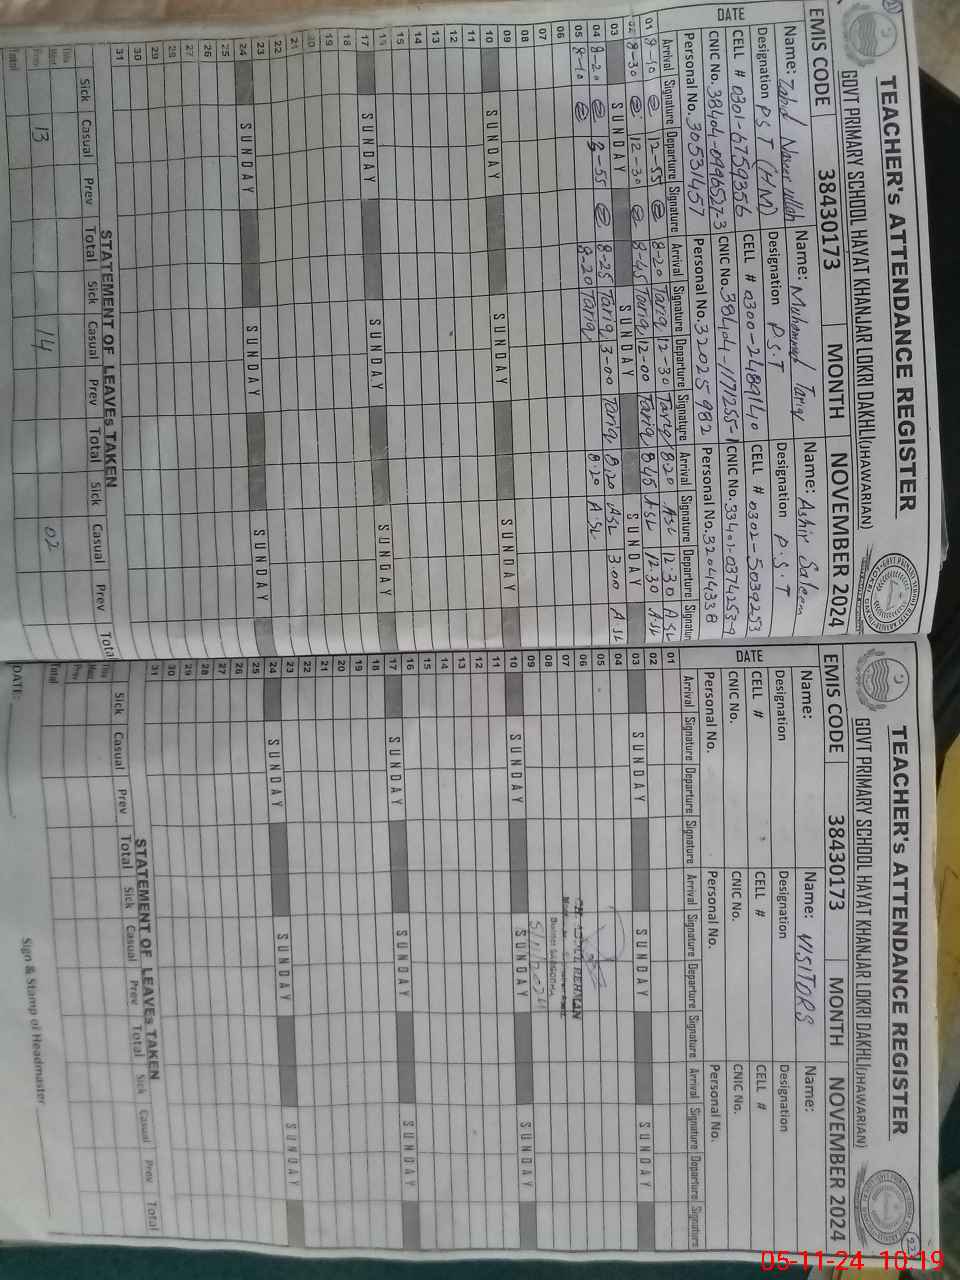 TEACHER's ATTENDANCE REGISTER
GOVT PRIMARY SCHOOL HAYAT KHANJAR LOKRI DAKHLI(JHAWARIAN)
EMIS CODE 38430173 MONTH NOVEMBER 2024
Name: Zahid Naseerullah Name: Muhammad Tariq Name: Ashir Saleem
Designation PST (HM) Designation P.S.T Designation P.S.T
CELL # 0301-6759356 CELL # 0300-2489140 CELL # 0302-5039253
CNIC No. CNIC No. CNIC No.
Personal No. 30531457 Personal No. 32025982 Personal No. 32044338
DATE Arrival Signature Departure Signature Arrival Signature Departure Signature Arrival Signature Departure Signature
01 8-10 12-55 8-20 Tariq 12-30 Tariq 8.20 A.SL 12.30 A.SL
02 8-30 12-30 8-45 Tariq 12-00 Tariq 8.45 A.SL 12.30 A.SL
03 SUNDAY SUNDAY SUNDAY
04 8-20 8-25 Tariq 3-00 Tariq 8.20 A.SL 3.00 A.SL
05 8-10 8-20 Tariq 8.20 A.SL
06
07
08
09
10 SUNDAY SUNDAY SUNDAY
11
12
13
14
15
16
17 SUNDAY SUNDAY SUNDAY
18
19
20
21
22
23
24 SUNDAY SUNDAY SUNDAY
25
26
27
28
29
30
31
STATEMENT OF LEAVEs TAKEN
Sick Casual Prev Total Sick Casual Prev Total Sick Casual Prev Total
This
Prev 13 14 02
Total
TEACHER's ATTENDANCE REGISTER
GOVT PRIMARY SCHOOL HAYAT KHANJAR LOKRI DAKHLI(JHAWARIAN)
EMIS CODE 38430173 MONTH NOVEMBER 2024
Name: Name: VISITORS Name:
Designation Designation Designation
CELL # CELL # CELL #
CNIC No. CNIC No. CNIC No.
Personal No. Personal No. Personal No.
DATE Arrival Signature Departure Signature Arrival Signature Departure Signature Arrival Signature Departure Signature
01
02
03 SUNDAY SUNDAY SUNDAY
04
05
06 REHMAN
07
08
09 5/11/2024
10 SUNDAY SUNDAY SUNDAY
11
12
13
14
15
16
17 SUNDAY SUNDAY SUNDAY
18
19
20
21
22
23
24 SUNDAY SUNDAY SUNDAY
25
26
27
28
29
30
31
STATEMENT OF LEAVEs TAKEN
Sick Casual Prev Total Sick Casual Prev Total Sick Casual Prev Total
This
Prev
Total
DATE: Sign & Stamp of Headmaster
05-11-24 10:19